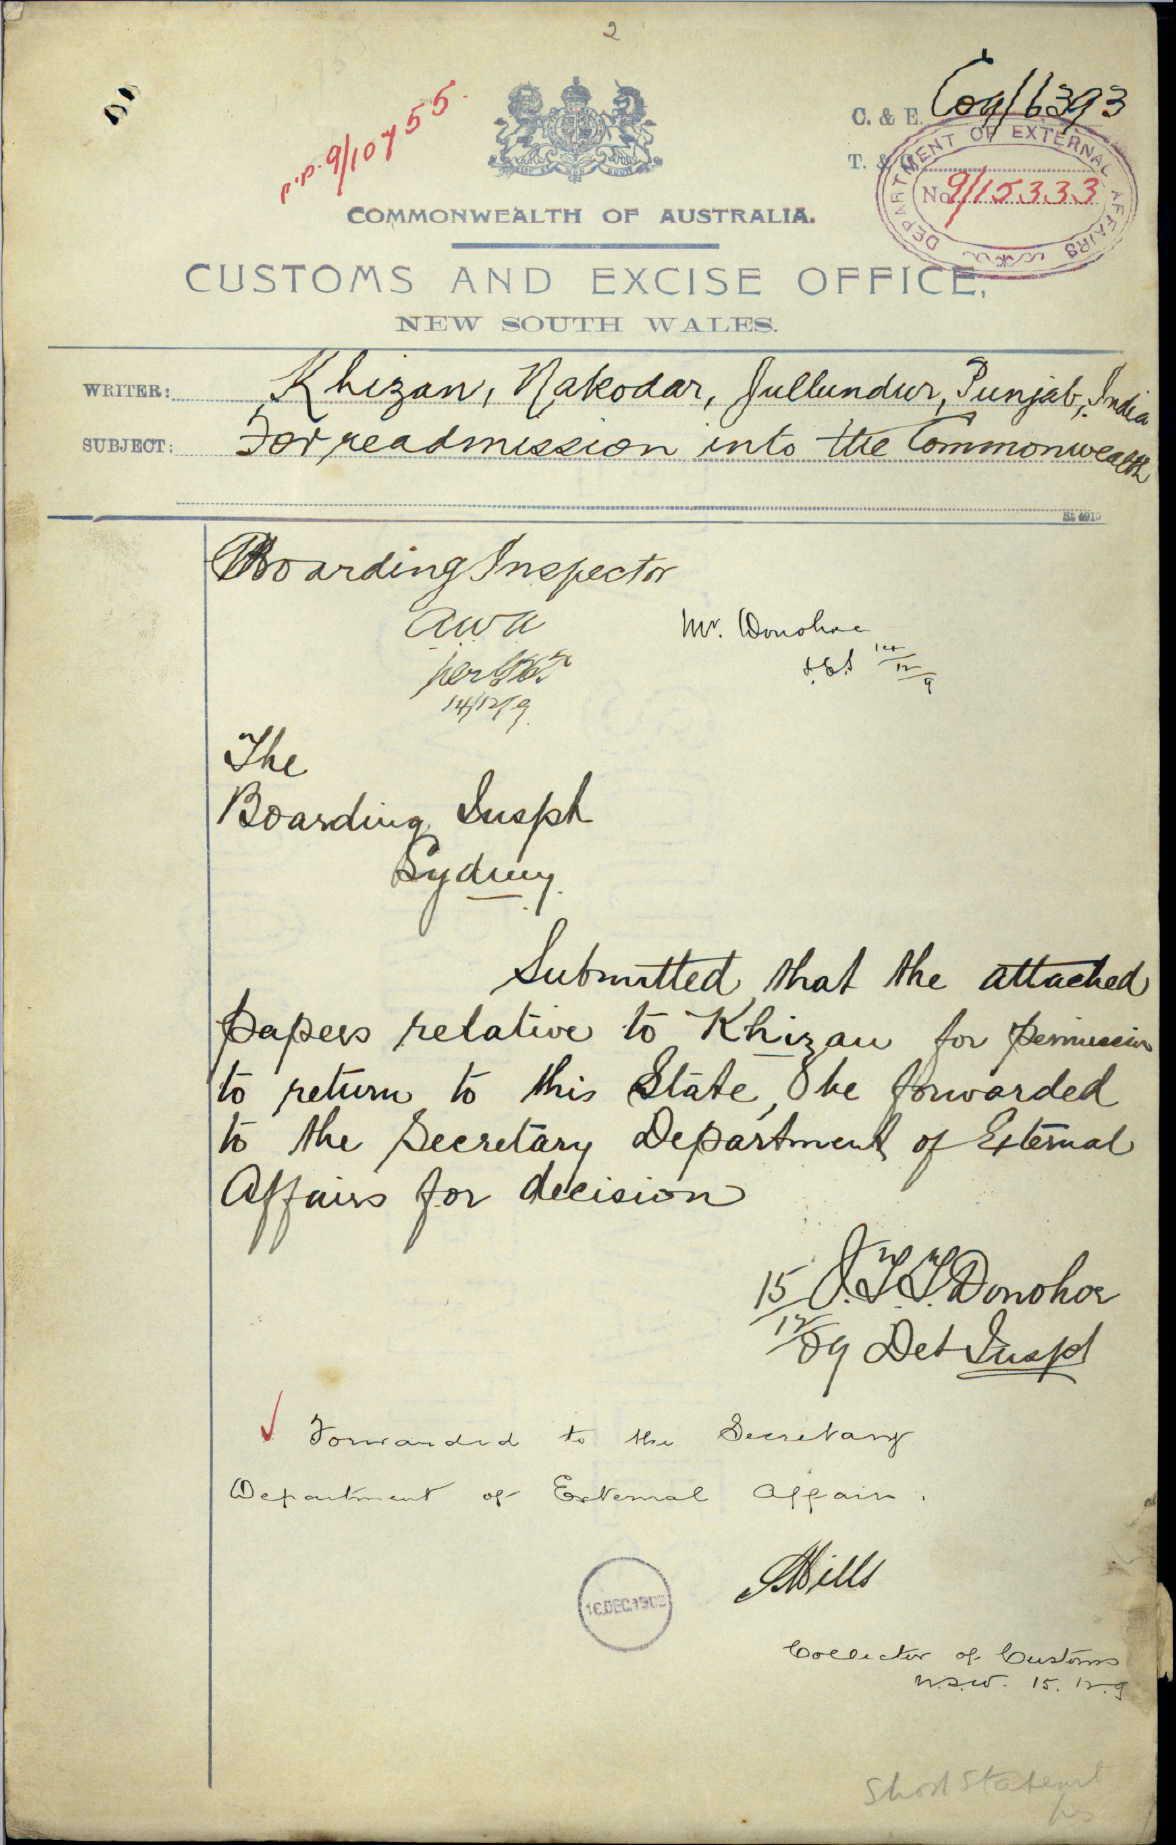 2
p.p. 9/10755.
C. & E. C09/16393
T. & C.
DEPARTMENT OF EXTERNAL AFFAIRS
No 9/15333
COMMONWEALTH OF AUSTRALIA.
CUSTOMS AND EXCISE OFFICE,
NEW SOUTH WALES.
WRITER: Khizan, Nakodar, Jullundur, Punjab, India
SUBJECT: For readmission into the Commonwealth
Boarding Inspector
Mr. Donohoe
14/12/9
14/12/9
The
Boarding Inspr
Sydney.
Submitted that the attached
papers relative to Khizan for permission
to return to this State, be forwarded
to the Secretary Department of External
Affairs for decision
15 J.T.T. Donohoe
12/09 Det Inspr
Forwarded to the Secretary
Department of External Affairs.
16.DEC.1909
Mills
Collector of Customs
N.S.W. 15.12.9
Short Statement